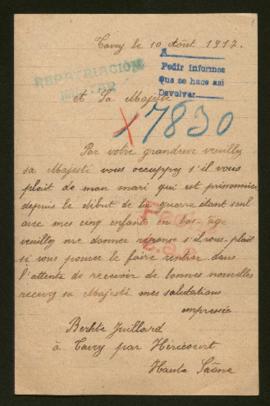 Tavey le 10 Août 1917.
REPATRIACIÓN
Pedir informes
Que se hace así
Devolver
A Sa Majesté
X 7830
Par votre grandeur veuillez
sa Majesté vous occuppez s'il vous
plait de mon mari qui est prisonnier
depuis le début de la guerre étant seul
avec mes cinq enfants en bas age
veuillez me donner réponse s'il vous-plait
si vous pouvez le faire rentrer dans
l'attente de recevoir de bonnes nouvelles
recevez sa Majesté mes salutations
empressées
Berthe Juillard
à Tavey par Héricourt
Haute Saône